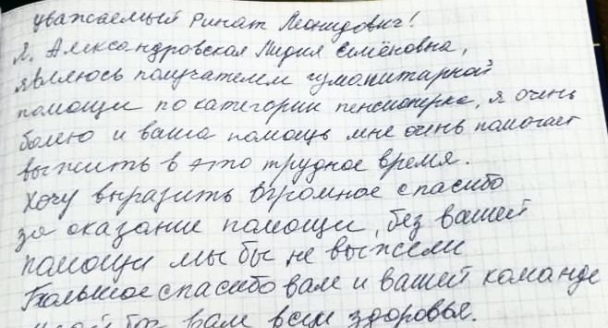 уважаемый Ринат Леонидович!
Я, Александровская Лидия Семёновна,
являюсь получателем гуманитарной
помощи по категории пенсионерка, я очень
болею и ваша помощь мне очень помогает
выжить в это трудное время.
Хочу выразить Огромное спасибо
за оказание помощи, без вашей
помощи мы бы не выжили
Большое спасибо вам и вашей команде
дай Бог вам всем здоровье.